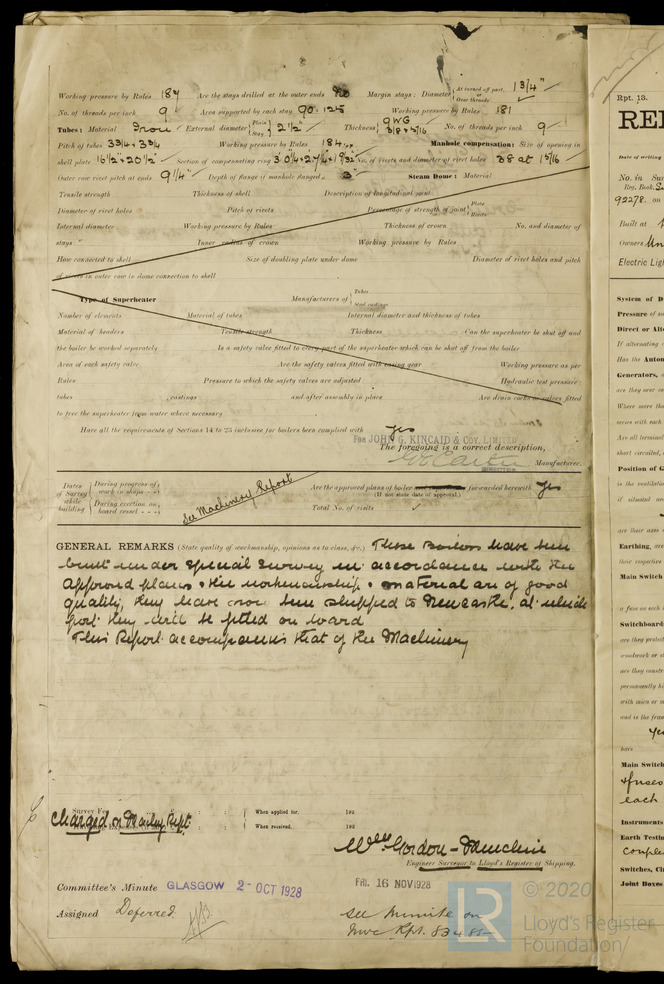 Working pressure by Rules 187 Are the stays drilled at the outer ends No Margin stays: Diameter { At turned off part, or Over threads 1 3/4"
No. of threads per inch 9 Area supported by each stay 90.125 Working pressure by Rules 181
Tubes: Material Iron External diameter { Plain Stay 2 1/2" Thickness { 9 WG 3/8 & 5/16 No. of threads per inch 9
Pitch of tubes 3 3/4 x 3 3/4 Working pressure by Rules Manhole compensation: Size of opening in
shell plate 16 1/2" x 20 1/2" Section of compensating ring No. of rivets and diameter of rivet holes 38 at 15/16
Outer row rivet pitch at ends 9 1/4" Depth of flange if manhole flanged 3" Steam Dome: Material
Tensile strength Thickness of shell Description of longitudinal joint
Diameter of rivet holes Pitch of rivets Percentage of strength of joint { Plate Rivets
Internal diameter Working pressure by Rules Thickness of crown No. and diameter of
stays Inner radius of crown Working pressure by Rules
How connected to shell Size of doubling plate under dome Diameter of rivet holes and pitch
of rivets in outer row in dome connection to shell
Type of Superheater Manufacturers of { Tubes Steel castings
Number of elements Material of tubes Internal diameter and thickness of tubes
Material of headers Tensile strength Thickness Can the superheater be shut off and
the boiler be worked separately Is a safety valve fitted to every part of the superheater which can be shut off from the boiler
Area of each safety valve Are the safety valves fitted with easing gear Working pressure as per
Rules Pressure to which the safety valves are adjusted Hydraulic test pressure
tubes castings and after assembly in place Are drain cocks or valves fitted
to free the superheater from water where necessary
Have all the requirements of Sections 14 to 25 inclusive for boilers been complied with yes
FOR JOHN G. KINCAID & COY. LIMITED
The foregoing is a correct description,
Manufacturer.
Dates of Survey while building { During progress of work in shops - - During erection on board vessel - - - See Machinery Report Are the approved plans of boiler forwarded herewith yes
(If not state date of approval.)
Total No. of visits
GENERAL REMARKS (State quality of workmanship, opinions as to class, &c.) These Boilers have been
built under special survey in accordance with the
approved plans & the workmanship & material are of good
quality, they have now been shipped to Newcastle, at which
port they will be fitted on board
This Report accompanies that of the Machinery
Survey Fee When applied for, 192
Charged on Machy Rept. When received, 192
Engineer Surveyor to Lloyd's Register of Shipping.
Committee's Minute GLASGOW 2 - OCT 1928 FRI. 16 NOV 1928
Assigned Deferred. See minute on
Nwc Rpt. 83485
LR © 2020
Lloyd's Register
Foundation
Rpt. 13.
Date of writing
No. in Sur
Reg. Book.
92278. on
Built at
Owners
Electric Lig
System of D
Pressure of su
Direct or Alte
If alternating c
Has the Autom
Generators,
are they over co
Where more tha
series with each
Are all terminal
short circuited,
Position of G
in the ventilatio
if situated
are their axes
Earthing, are
their respective
Main Switch
a fuse on each i
Switchboard
are they protect
woodwork or ot
are they constru
permanently hi
with mica or m
and is the fram
bars
Main Switch
fuses
each
Instruments
Earth Testin
Couple
Switches, Ci
Joint Boxes